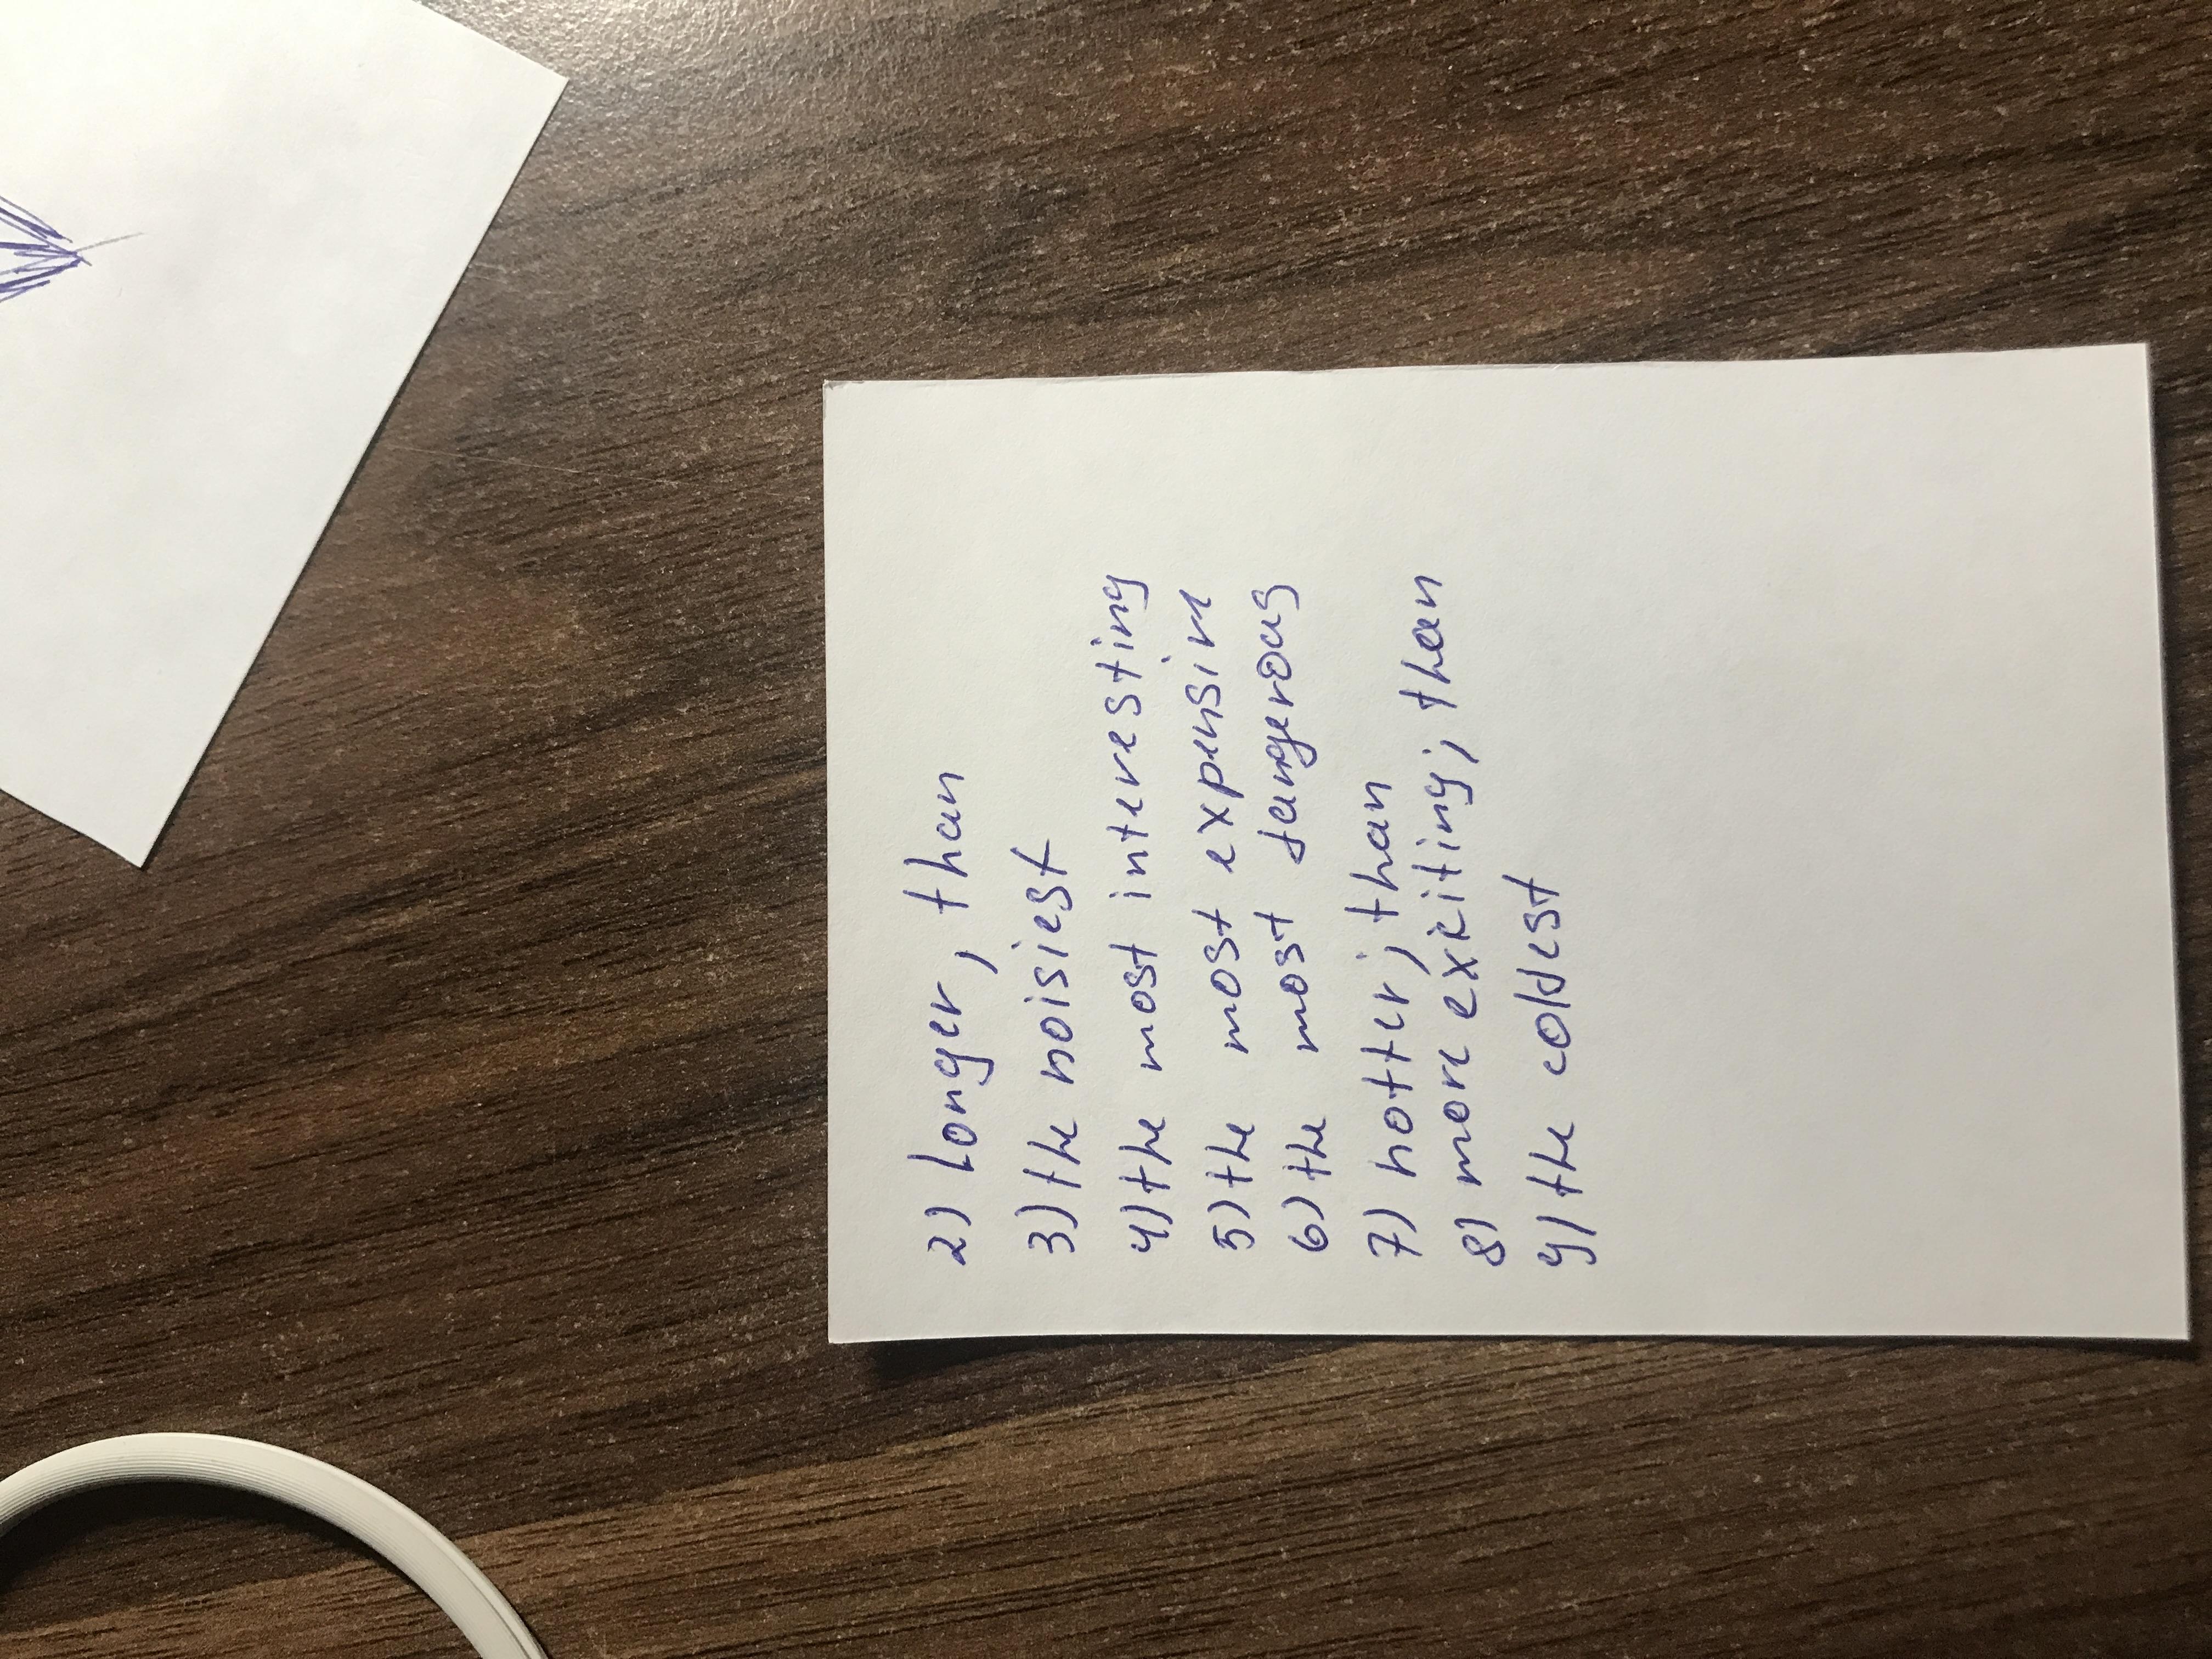 2) Longer, than
3) the noisiest
4) the most interesting
5) the most expensive
6) the most dangerous
7) hotter; than
8) more exciting; than
9) the coldest